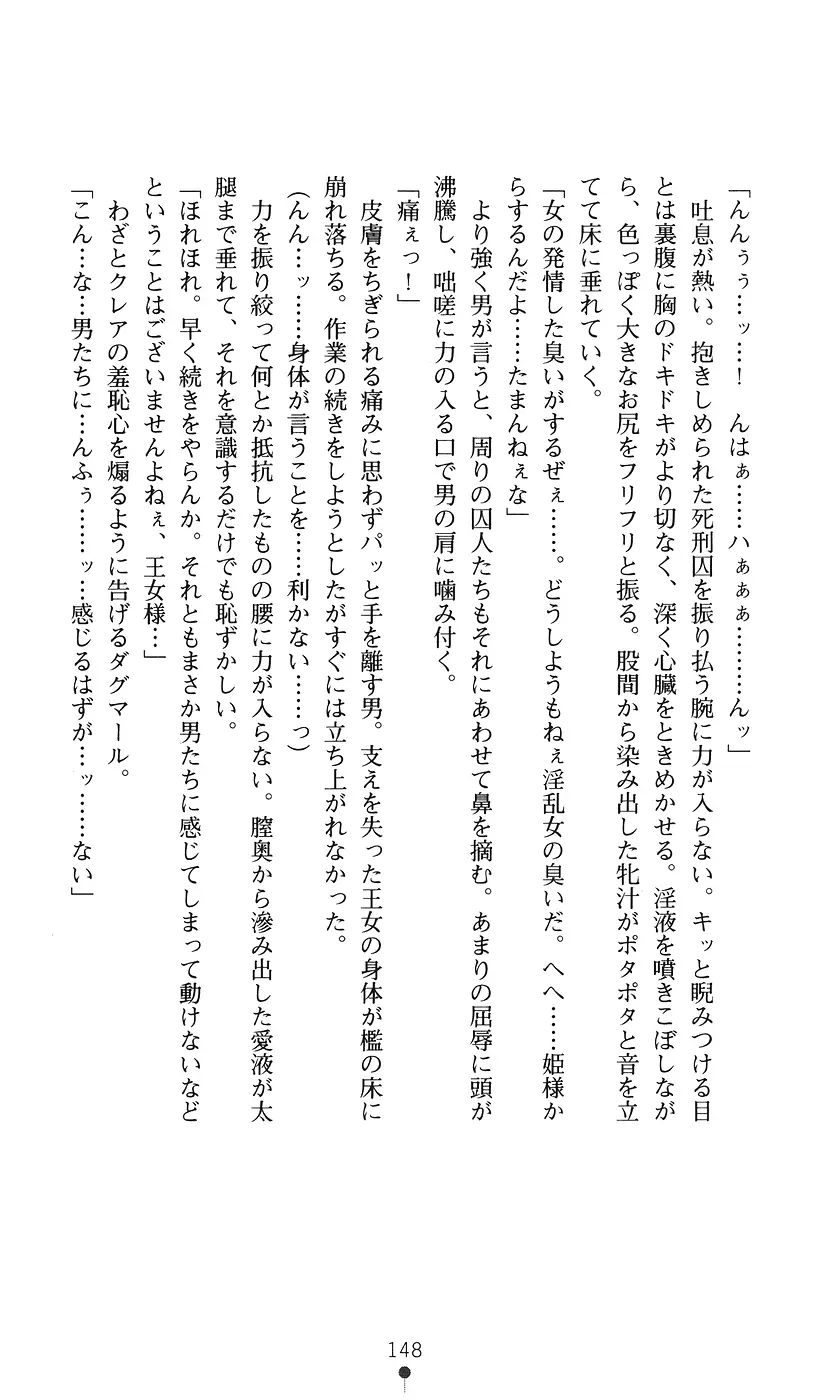 「んんぅぅ…ッ…！　んはぁ……ハぁぁぁ………んッ」
　吐息が熱い。抱きしめられた死刑囚を振り払う腕に力が入らない。キッと睨みつける目
とは裏腹に胸のドキドキがより切なく、深く心臓をときめかせる。淫液を噴きこぼしなが
ら、色っぽく大きなお尻をフリフリと振る。股間から染み出した牝汁がポタポタと音を立
てて床に垂れていく。
「女の発情した臭いがするぜぇ……。どうしようもねぇ淫乱女の臭いだ。へへ……姫様か
らするんだよ……たまんねぇな」
　より強く男が言うと、周りの囚人たちもそれにあわせて鼻を摘む。あまりの屈辱に頭が
沸騰し、咄嗟に力の入る口で男の肩に噛み付く。
「痛ぇっ！」
　皮膚をちぎられる痛みに思わずパッと手を離す男。支えを失った王女の身体が檻の床に
崩れ落ちる。作業の続きをしようとしたがすぐには立ち上がれなかった。
（んん…ッ……身体が言うことを……利かない……っ）
　力を振り絞って何とか抵抗したものの腰に力が入らない。膣奥から滲み出した愛液が太
腿まで垂れて、それを意識するだけでも恥ずかしい。
「ほれほれ。早く続きをやらんか。それともまさか男たちに感じてしまって動けないなど
ということはございませんよねぇ、王女様…」
　わざとクレアの羞恥心を煽るように告げるダグマール。
「こん…な…男たちに…んふぅ……ッ…感じるはずが…ッ……ない」
148